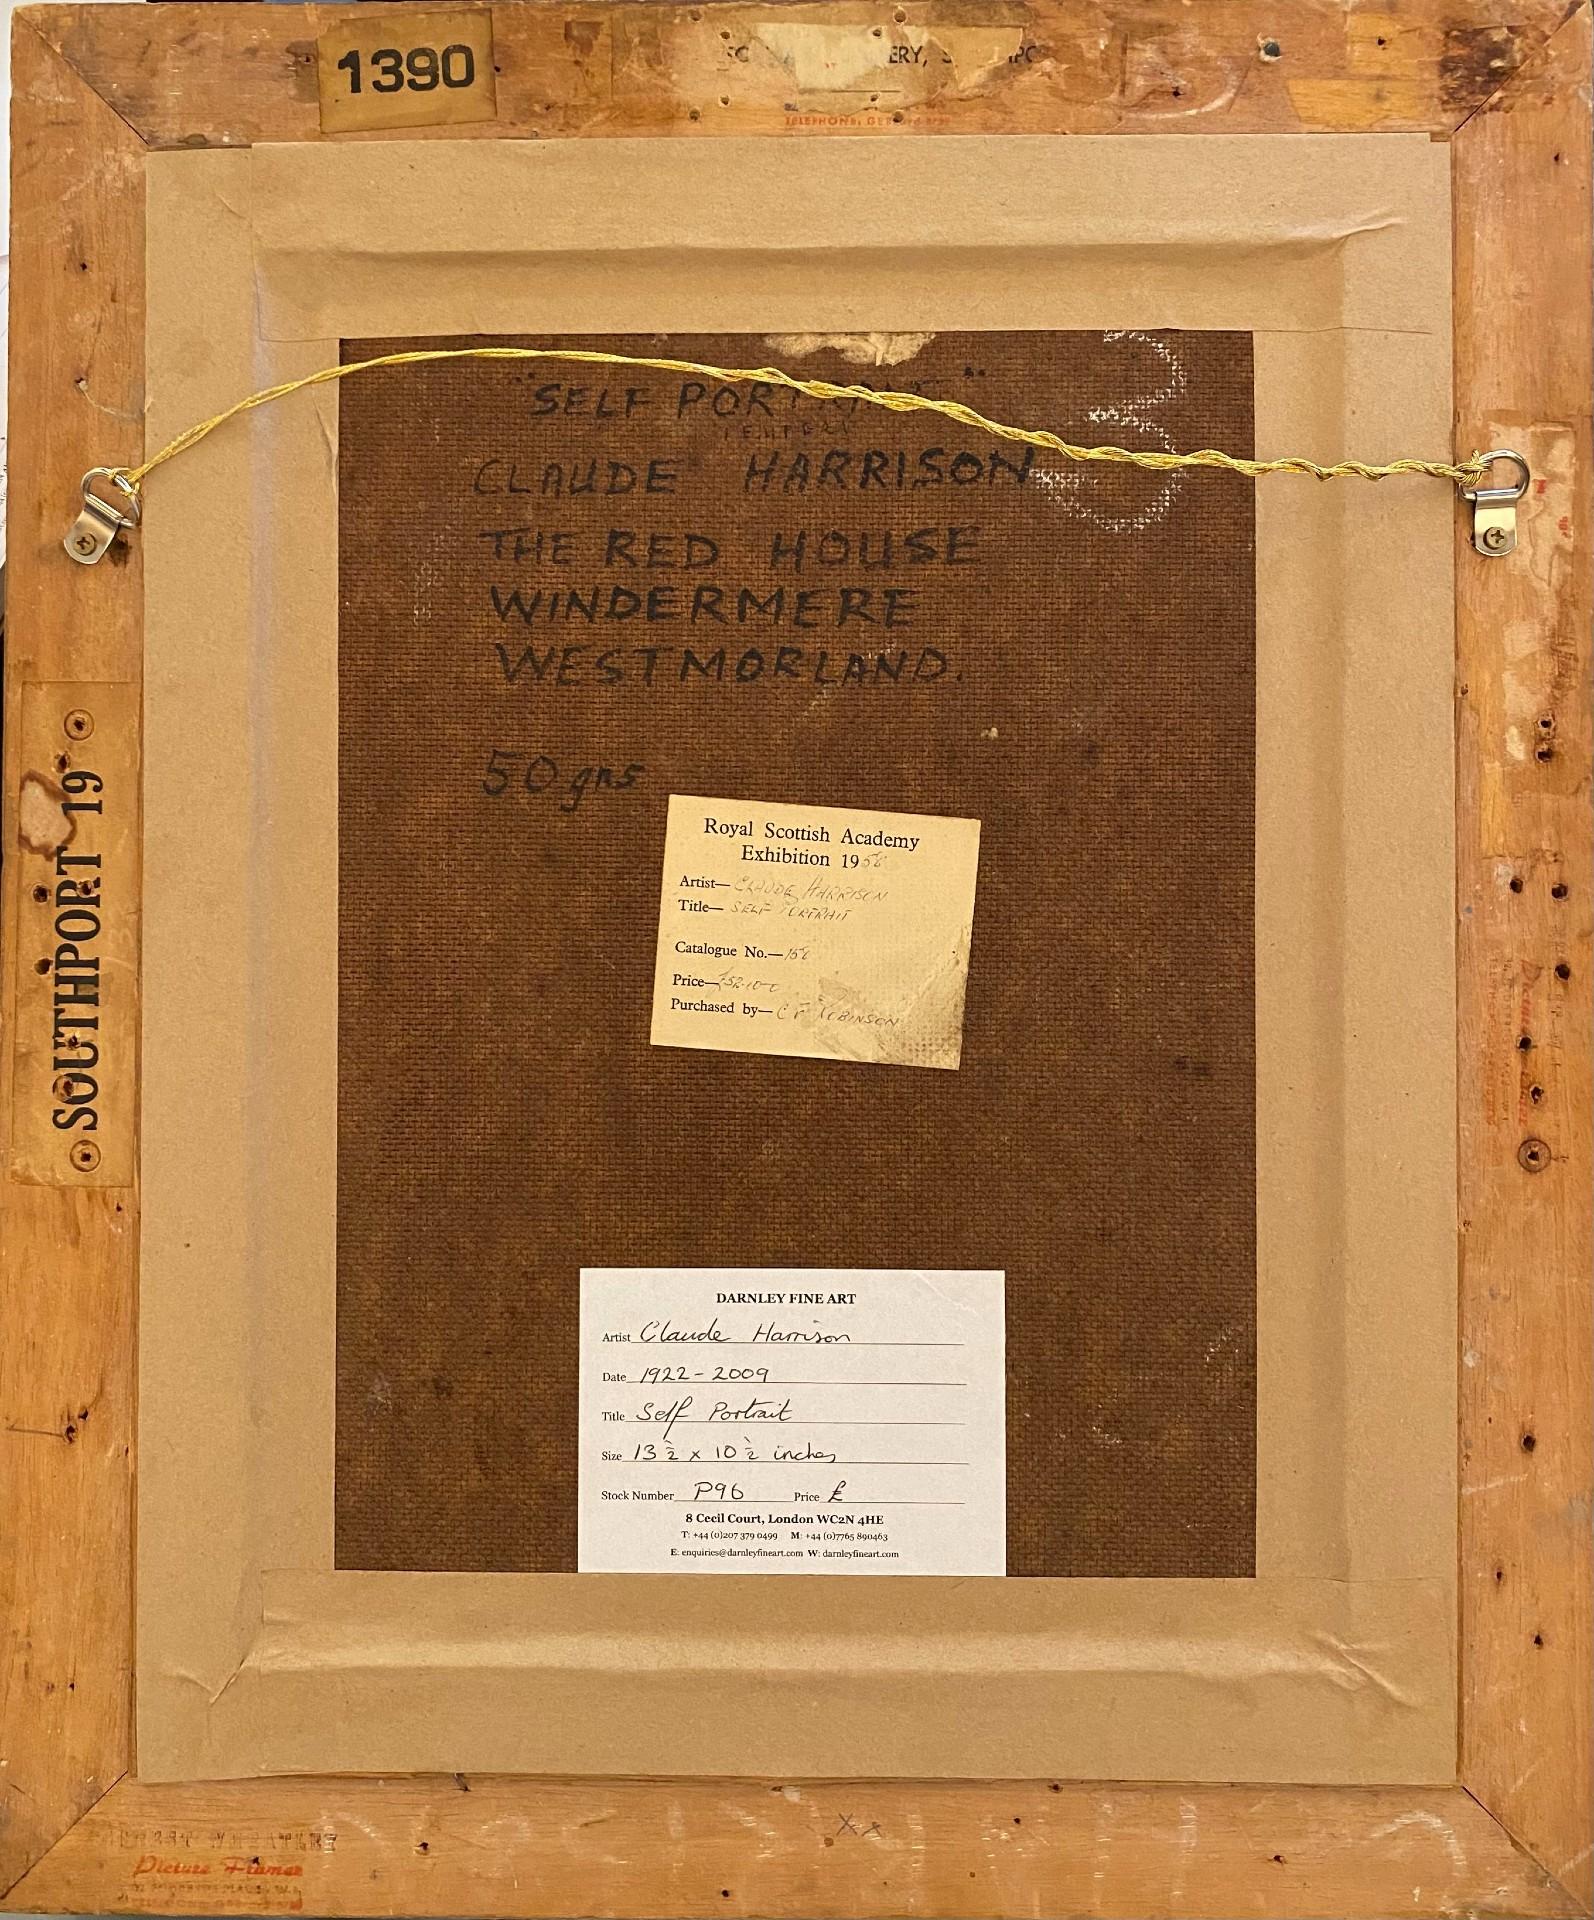 1390
ERY,
TELEPHONE:
"SELF PORTRAIT"
CLAUDE HARRISON
THE RED HOUSE
WINDERMERE
WESTMORLAND.
50 gns
SOUTHPORT 19
Royal Scottish Academy
Exhibition 19
Artist— CLAUDE HARRISON
Title— SELF PORTRAIT
Catalogue No.—
Price— £52-10-0
Purchased by— ROBINSON
DARNLEY FINE ART
Artist Claude Harrison
Date 1922 - 2009
Title Self Portrait
Size 13 ½ x 10 ½ inches
Stock Number P96 Price £
8 Cecil Court, London WC2N 4HE
T: +44 (0)207 379 0499 M: +44 (0)7765 890463
E: enquiries@darnleyfineart.com W: darnleyfineart.com
xx
Picture Framer